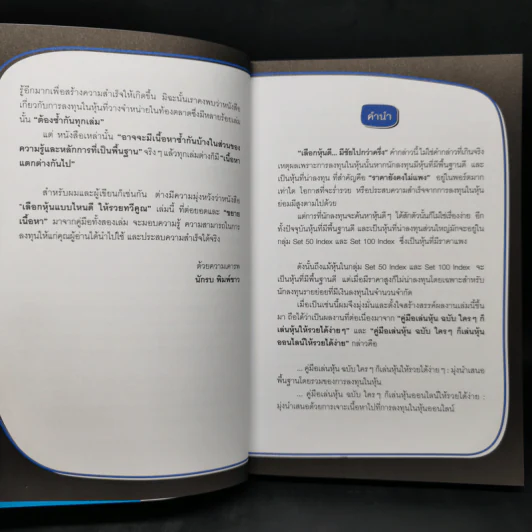 รู้อีกมากเพื่อสร้างความสำเร็จให้เกิดขึ้น มิฉะนั้นเราคงพบว่าหนังสือ
เกี่ยวกับการลงทุนในหุ้นที่วางจำหน่ายในท้องตลาดซึ่งมีหลายร้อยเล่ม
นั้น "ต้องซ้ำกันทุกเล่ม"
แต่ หนังสือเหล่านั้น "อาจจะมีเนื้อหาซ้ำกันบ้างในส่วนของ
ความรู้และหลักการที่เป็นพื้นฐาน" จริงๆ แล้วทุกเล่มต่างก็มี "เนื้อหา
แตกต่างกันไป"
สำหรับผมและผู้เขียนก็เช่นกัน ต่างมีความมุ่งหวังว่าหนังสือ
"เลือกหุ้นแบบไหนดี ให้รวยทวีคูณ" เล่มนี้ ที่ต่อยอดและ "ขยาย
เนื้อหา" มาจากคู่มือทั้งสองเล่ม จะมอบความรู้ ความสามารถในการ
ลงทุนให้แก่คุณผู้อ่านได้นำไปใช้ และประสบความสำเร็จได้จริง
ด้วยความเคารพ
นักรบ พิมพ์ขาว
คำนำ
"เลือกหุ้นดี... มีชัยไปกว่าครึ่ง" คำกล่าวนี้ ไม่ใช่คำกล่าวที่เกินจริง
เหตุผลเพราะการลงทุนในหุ้นนั้นหากนักลงทุนมีหุ้นที่มีพื้นฐานดี และ
เป็นหุ้นที่น่าลงทุน ที่สำคัญคือ "ราคายังคงไม่แพง" อยู่ในพอร์ตมาก
เท่าใด โอกาสที่จะร่ำรวย หรือประสบความสำเร็จจากการลงทุนในหุ้น
ย่อมมีสูงตามไปด้วย
แต่การที่นักลงทุนจะค้นหาหุ้นดีๆ ได้สักตัวนั้นก็ไม่ใช่เรื่องง่าย อีก
ทั้งปัจจุบันหุ้นที่มีพื้นฐานดี และเป็นหุ้นที่น่าลงทุนส่วนใหญ่มักจะอยู่ใน
กลุ่ม Set 50 Index และ Set 100 Index ซึ่งเป็นหุ้นที่มีราคาแพง
ดังนั้นถึงแม้หุ้นในกลุ่ม Set 50 Index และ Set 100 Index จะ
เป็นหุ้นที่มีพื้นฐานดี แต่เมื่อมีราคาสูงก็ไม่น่าลงทุนโดยเฉพาะสำหรับ
นักลงทุนรายย่อยที่มีเงินลงทุนในจำนวนจำกัด
เมื่อเป็นเช่นนี้ผมจึงมุ่งมั่นและตั้งใจสร้างสรรค์ผลงานเล่มนี้ขึ้น
มา ถือได้ว่าเป็นผลงานที่ต่อเนื่องมาจาก "คู่มือเล่นหุ้น ฉบับ ใครๆ ก็
เล่นหุ้นให้รวยได้ง่ายๆ" และ "คู่มือเล่นหุ้น ฉบับ ใครๆ ก็เล่นหุ้น
ออนไลน์ให้รวยได้ง่าย" กล่าวคือ
... คู่มือเล่นหุ้น ฉบับ ใครๆ ก็เล่นหุ้นให้รวยได้ง่ายๆ : มุ่งนำเสนอ
พื้นฐานโดยรวมของการลงทุนในหุ้น
... คู่มือเล่นหุ้น ฉบับ ใครๆ ก็เล่นหุ้นออนไลน์ให้รวยได้ง่าย :
มุ่งนำเสนอด้วยการเจาะเนื้อหาไปที่การลงทุนในหุ้นออนไลน์